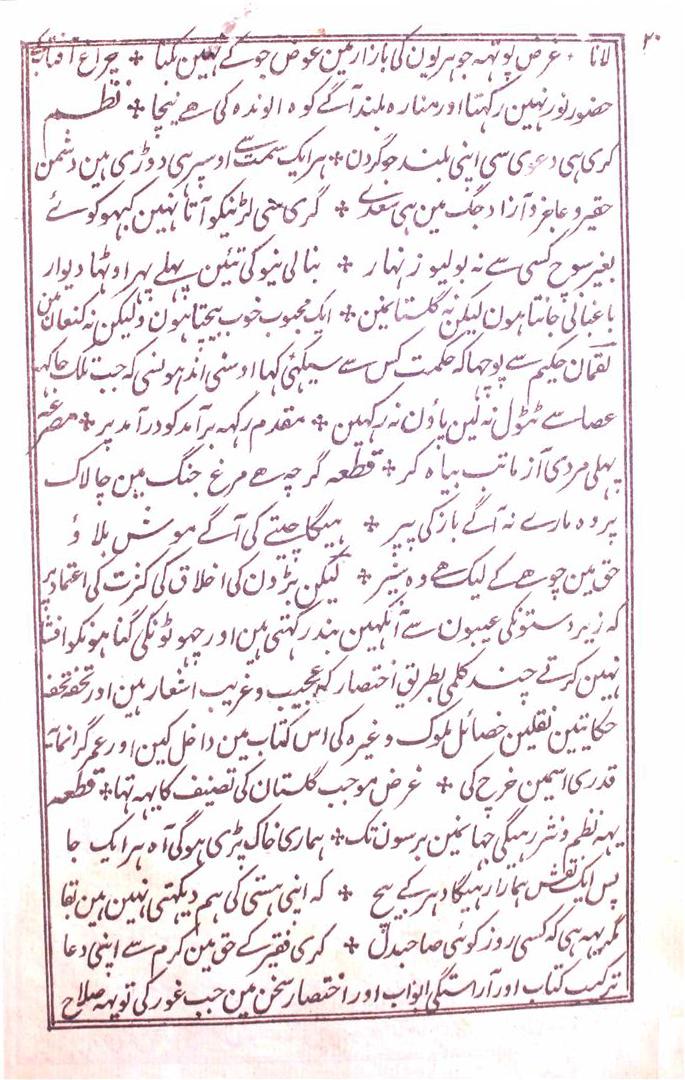 ۲۰
لانا ٭ غرض پوتھہ جوہریون کی بازار مین عوض جو کے نہین بکتا ٭ چراغ آفتاب کے
حضور نور نہین رکھتا اور منارہ بلند آگے کوہ الوند کی ھے نیچا ٭ نظم
کری ہی دعوی سی اپنی بلند جو گردن ٭ ہر ایک سمت سے اوسپر ہی دوڑی ہین دشمن
حقیر و عاجز و آزاد جگ مین ہی سعدی ٭ گری سی لڑنیکو آتا نہین کبھو کوئے
بغیر سوچ کسی سے نہ بولیو زنہار ٭ بنا لی نیو کی تئین پہلے پھر اوٹھا دیوار
باغبانی جانتا ہون لیکن نہ گلستان مین ٭ ایک محبوب خوب بیچتا ہون ولیکن نہ کنعان مین
لقمان حکیم سے پوچھا کہ حکمت کس سے سیکھی کہا اوسنی اندہونسی کہ جب تلک جاگہ
عصا سے ٹٹول نہ لین پاؤن نہ رکھین ٭ مقدم رکھہ برآمد کو درآمد پر ٭ مصرعہ
پہلی مردی آزما تب بیاہ کر ٭ قطعہ گرچہ ھے مرغ جنگ مین چالاک
پر وہ مارے نہ آگے باز کی پر ٭ ہیگا چیتے کی آگے موش بلاؤ
حق مین چوھے کے لیک ھے وہ شیر ٭ لیکن بڑون کی اخلاق کی کثرت کی اعتماد پر
کہ زیردستونکی عیبون سے آنکھین بند رکھتی ہین اور چھوٹونکی گناہونکو افشا
نہین کرتے چند کلمی بطریق اختصار کہ عجیب و غریب اشعار ہین اور تحفہ تحفہ
حکایتین نقلین خصائل ملوک وغیرہ کی اس کتاب مین داخل کین اور عمر گرانمایہ
قدری اسمین خرچ کی ٭ غرض موجب گلستان کی تصنیف کا یہہ تھا ٭ قطعہ
یہہ نظم و نثر رہیگی جہانمین برسون تک ٭ ہماری خاک پڑی ہوگی آہ ہر ایک جا
پس ایک نقش ہمارا رہیگا دہر کے بیچ ٭ کہ اپنی ہستی کی ہم دیکھتی نہین ہین بقا
مگر یہہ ہی کہ کسی روز کوئی صاحبدل ٭ کری فقیر کے حق مین کرم سے اپنی دعا
ترکیب کتاب اور آراستگی ابواب اور اختصار سخن مین جب غور کی تو یہہ صلاح